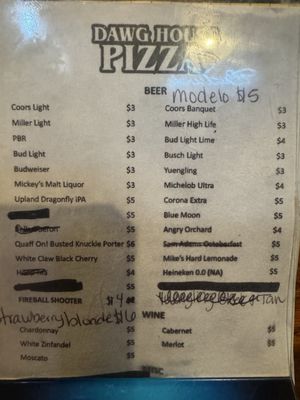 DAWG HOUSE
PIZZA
BEER Modelo $5
Coors Light $3 Coors Banquet $3
Miller Light $3 Miller High Life $3
PBR $3 Bud Light Lime $4
Bud Light $3 Busch Light $3
Budweiser $3 Yuengling $3
Mickey's Malt Liquor $3 Michelob Ultra $4
Upland Dragonfly IPA $5 Corona Extra $5
$5 Blue Moon $5
$5 Angry Orchard $4
Quaff On! Busted Knuckle Porter $6 Sam Adams Octoberfest $5
White Claw Black Cherry $5 Mike's Hard Lemonade $5
$5 Heineken 0.0 (NA) $5
$5
FIREBALL SHOOTER $4
Strawberry blonde $6 WINE
Chardonnay $5 Cabernet $5
White Zinfandel $5 Merlot $5
Moscato $5